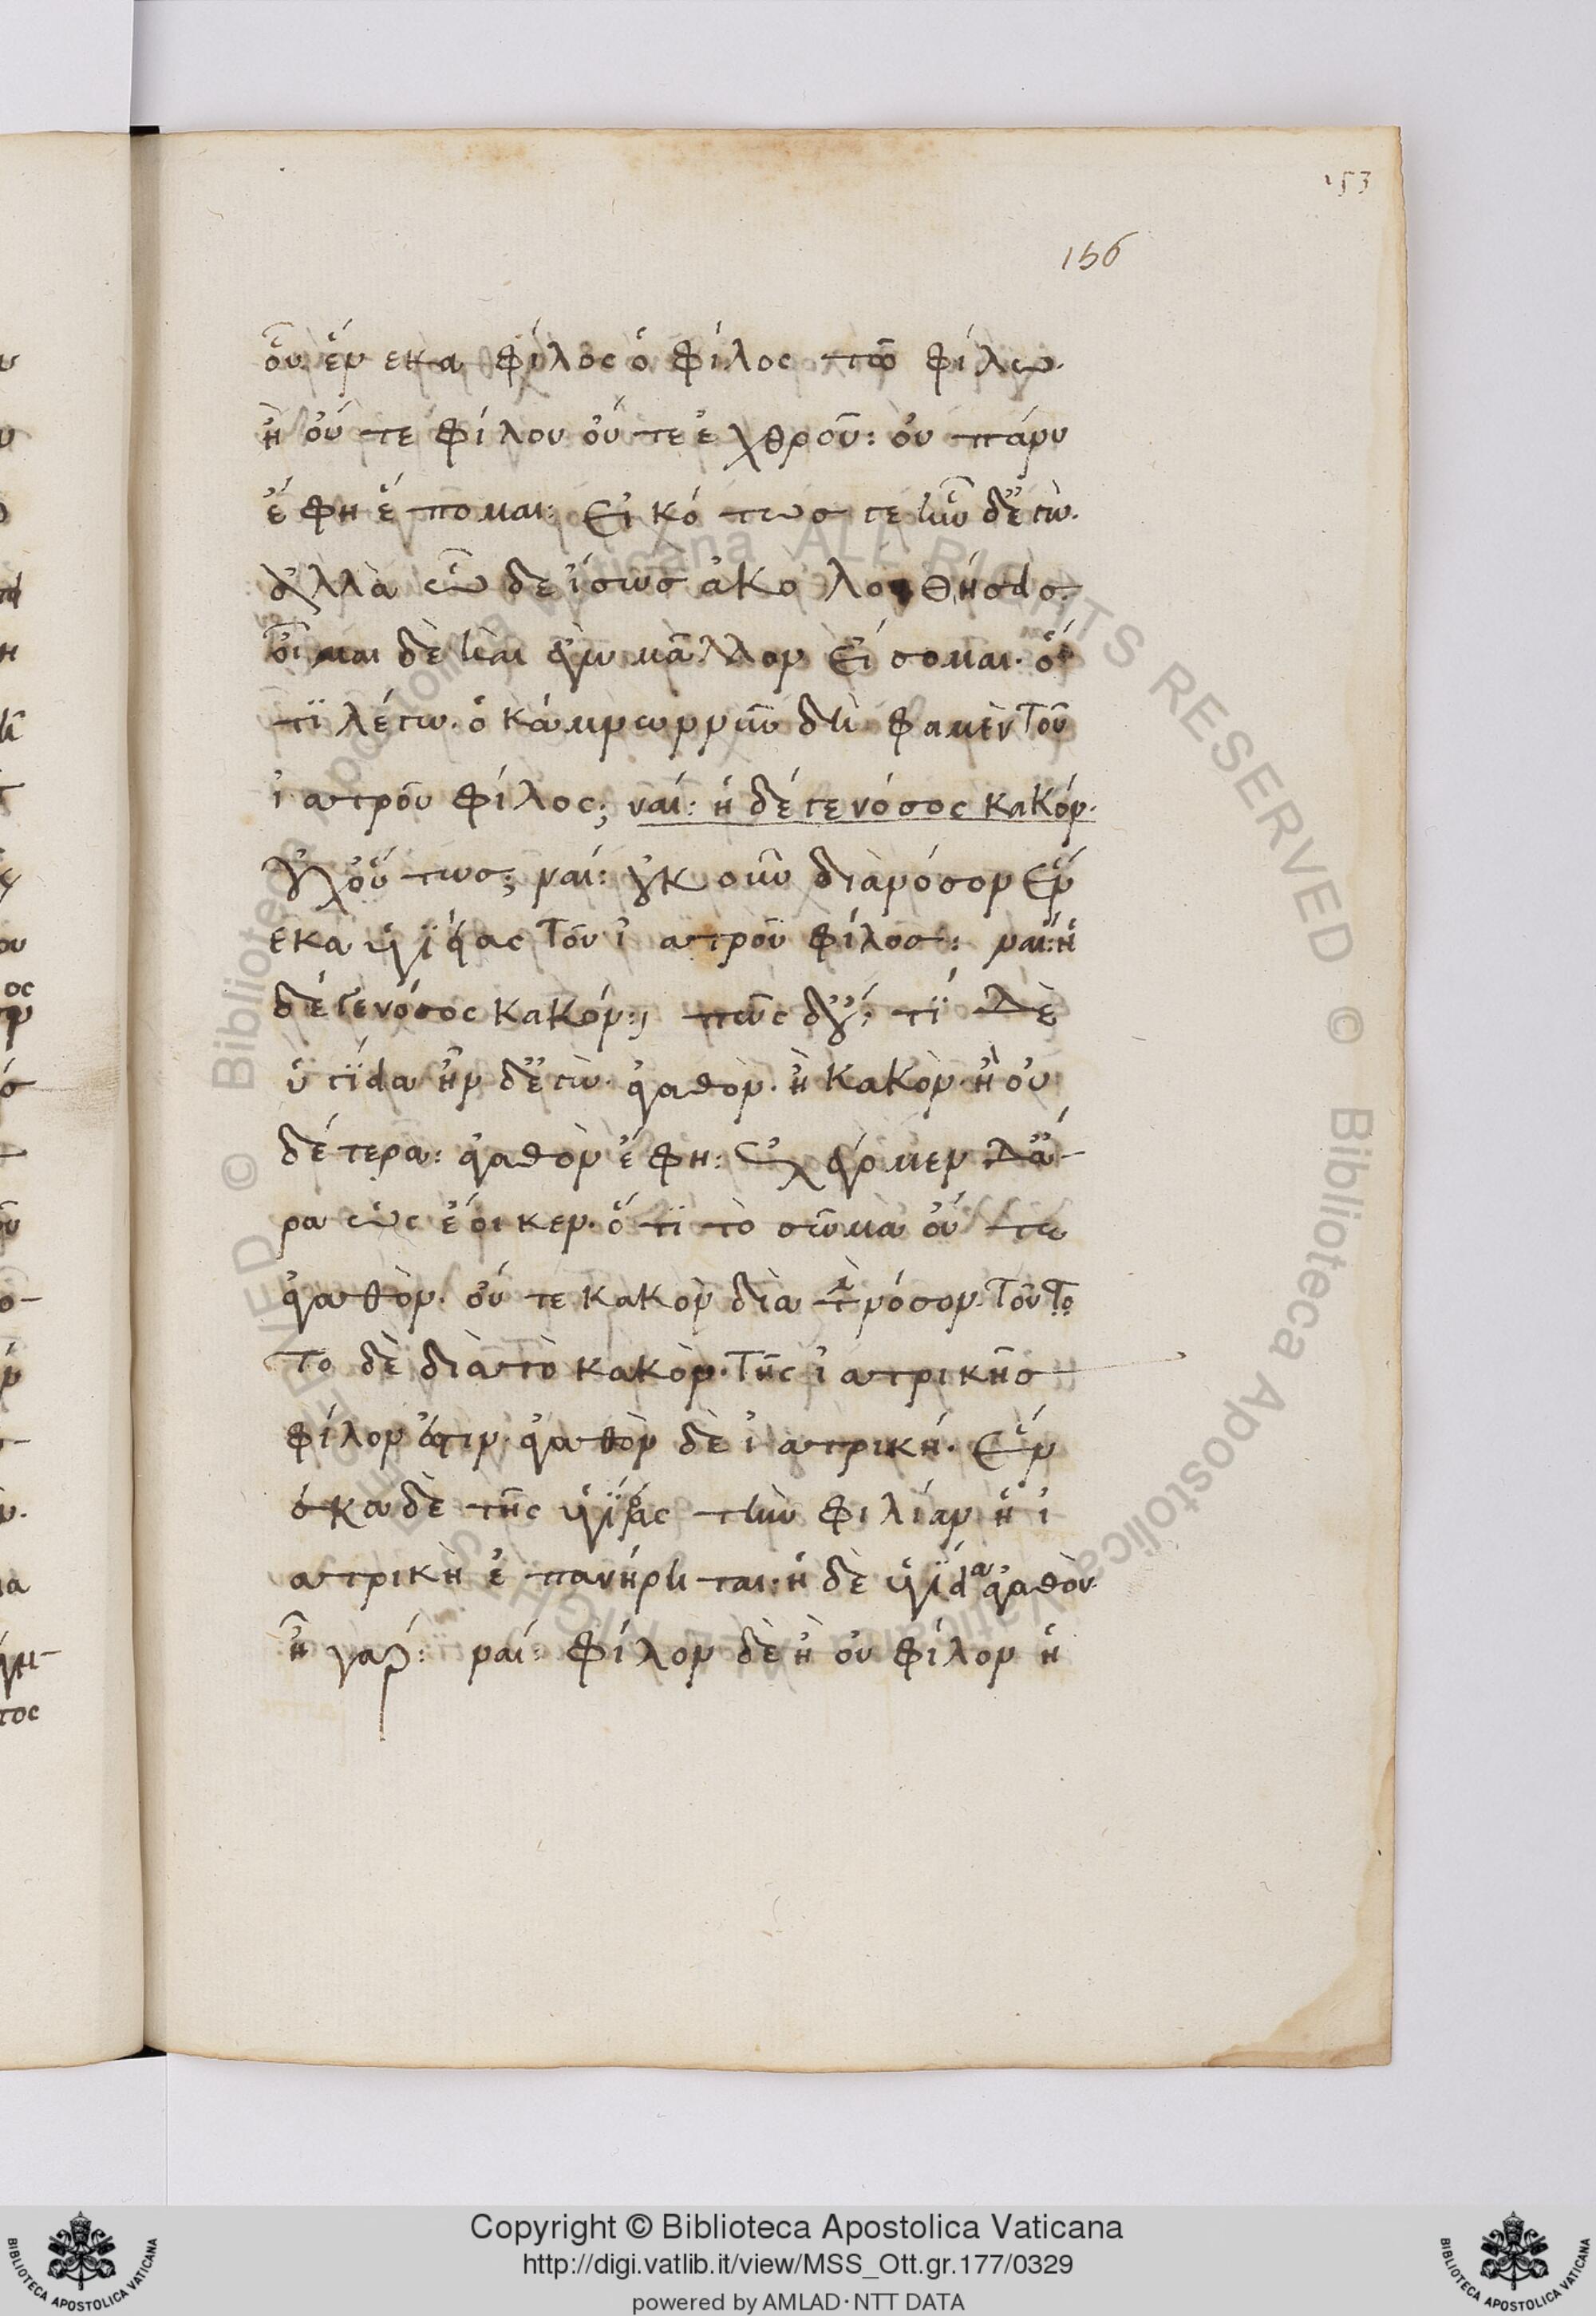 153
156
οὗ ἕνεκα φίλος ὁ φίλος τῶ φίλω·
ἢ οὔτε φίλου οὔτε ἐχθροῦ: οὐ πάνυ
ἔφη ἕπομαι: εἰκότως γε ἦν δ' ἐγώ·
ἀλλὰ ὧδε ἴσως ἀκολουθήσεις·
οἶμαι δὲ καὶ ἐγὼ μᾶλλον εἴσομαι· ὅ
τι λέγω· ὁ κάμνων νῦν δὴ φαμὲν τοῦ
ἰατροῦ φίλος; ναί: ἡ δέ γε νόσος κακόν·
οὐχ οὕτως; ναί: οὐκοῦν διὰ νόσον ἕν
εκα ὑγιείας τοῦ ἰατροῦ φίλος: ναί: ἡ
δέ γε νόσος κακόν:, πῶς δ' οὔ; τί δὲ
ὑγίεια ἦν δ' ἐγὼ· ἀγαθὸν· ἢ κακὸν· ἢ οὐ
δέτερα: ἀγαθὸν ἔφη: ἐλέγομεν δ' ἄ-
ρα ὡς ἔοικεν· ὅτι τὸ σῶμα οὔτε
ἀγαθὸν· οὔτε κακὸν διὰ τὴν νόσον· τοῦτο
το δὲ διὰ τὸ κακὸν· τῆς ἰατρικῆς
φίλον ἐστιν· ἀγαθὸν δὲ ἰατρική· ἕν
εκα δὲ τῆς ὑγιείας τὴν φιλίαν ἡ ἰ
ατρικὴ ἐπανήρηται· ἡ δὲ ὑγίεια ἀγαθὸν·
ἦ γάρ: ναί: φίλον δὲ ἢ οὐ φίλον ἡ
© Biblioteca Apostolica Vaticana ALL RIGHTS RESERVED
Copyright © Biblioteca Apostolica Vaticana
http://digi.vatlib.it/view/MSS_Ott.gr.177/0329
powered by AMLAD·NTT DATA
BIBLIOTECA APOSTOLICA VATICANA
BIBLIOTECA APOSTOLICA VATICANA